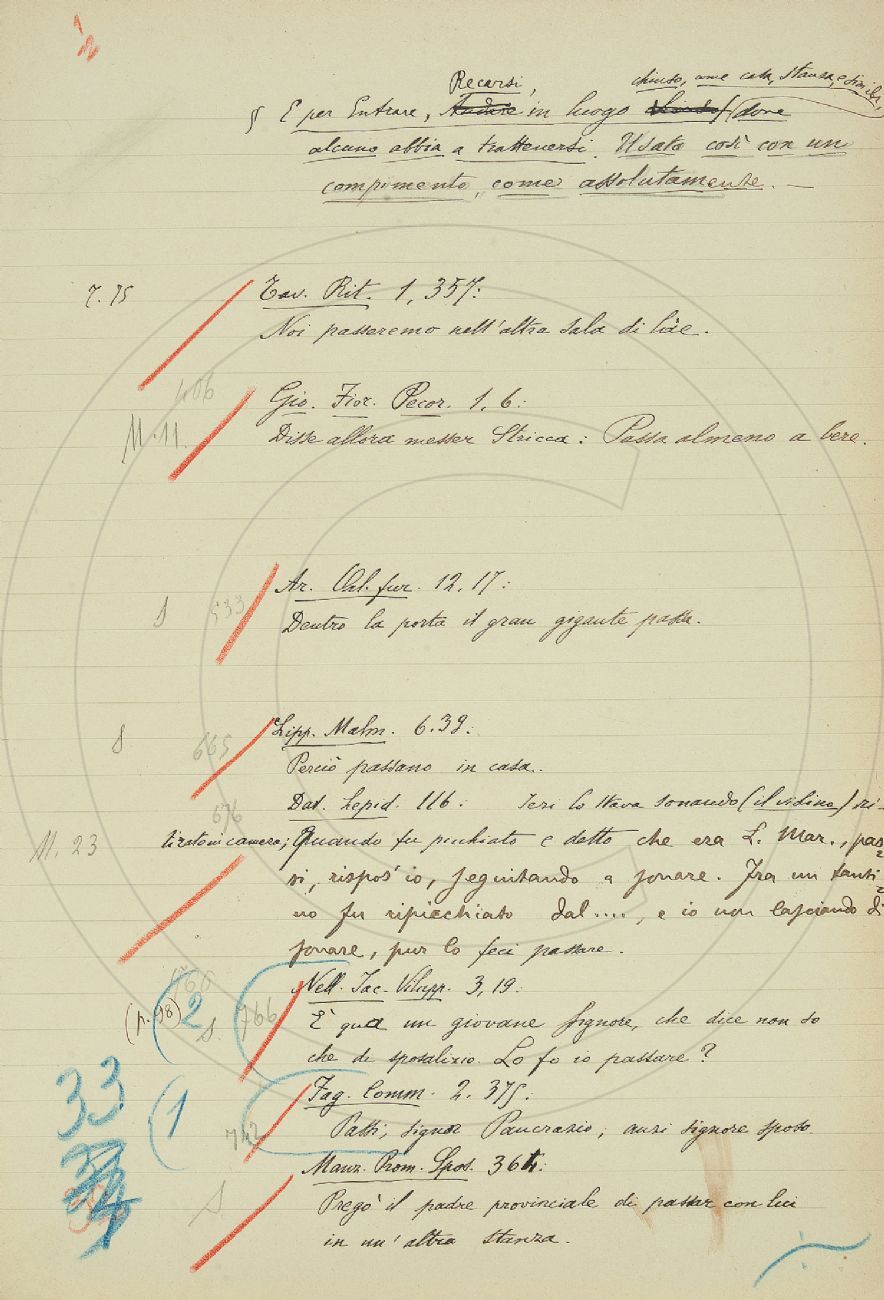 Recarsi, chiuso, come casa, stanza, e simili,
§ E per Entrare, Andare in luogo chiuso, dove
alcuno abbia a trattenersi. Usato così con un
compimento, come assolutamente. —
T. 75 Tav. Rit. 1, 357:
Noi passeremo nell'altra sala di lae.
406
M. 11. Gio. Fior. Pecor. 1, 6:
Disse allora messer Stricca: Passa almeno a bere.
Ar. Orl. fur. 12. 17:
S 533 Dentro la porta il gran gigante passa.
Lipp. Malm. 6. 39:
S 665
Perciò passano in casa.
Dat. Lepid. 116: Ieri lo stava sonando (il violino) ri-
676
M. 23 tirato in camera; Quando fu picchiato e detto che era L. Mar., pas=
si, rispos'io, seguitando a sonare. Fra un tanti=
no fu ripicchiato dal...., e io non lasciando di
sonare, pur lo feci passare.
766 Nell. Iac. Vilupp. 3, 19:
(p. 98) 2 S. 766 È qua un giovane signore, che dice non so
che di sposalizio. Lo fo io passare?
33 1 Fag. Comm. 2. 375:
742 Passi, signor Pancrazio, anzi signore sposo
Manz. Prom. Spos. 364:
S Pregò il padre provinciale di passar con lui
in un'altra stanza.